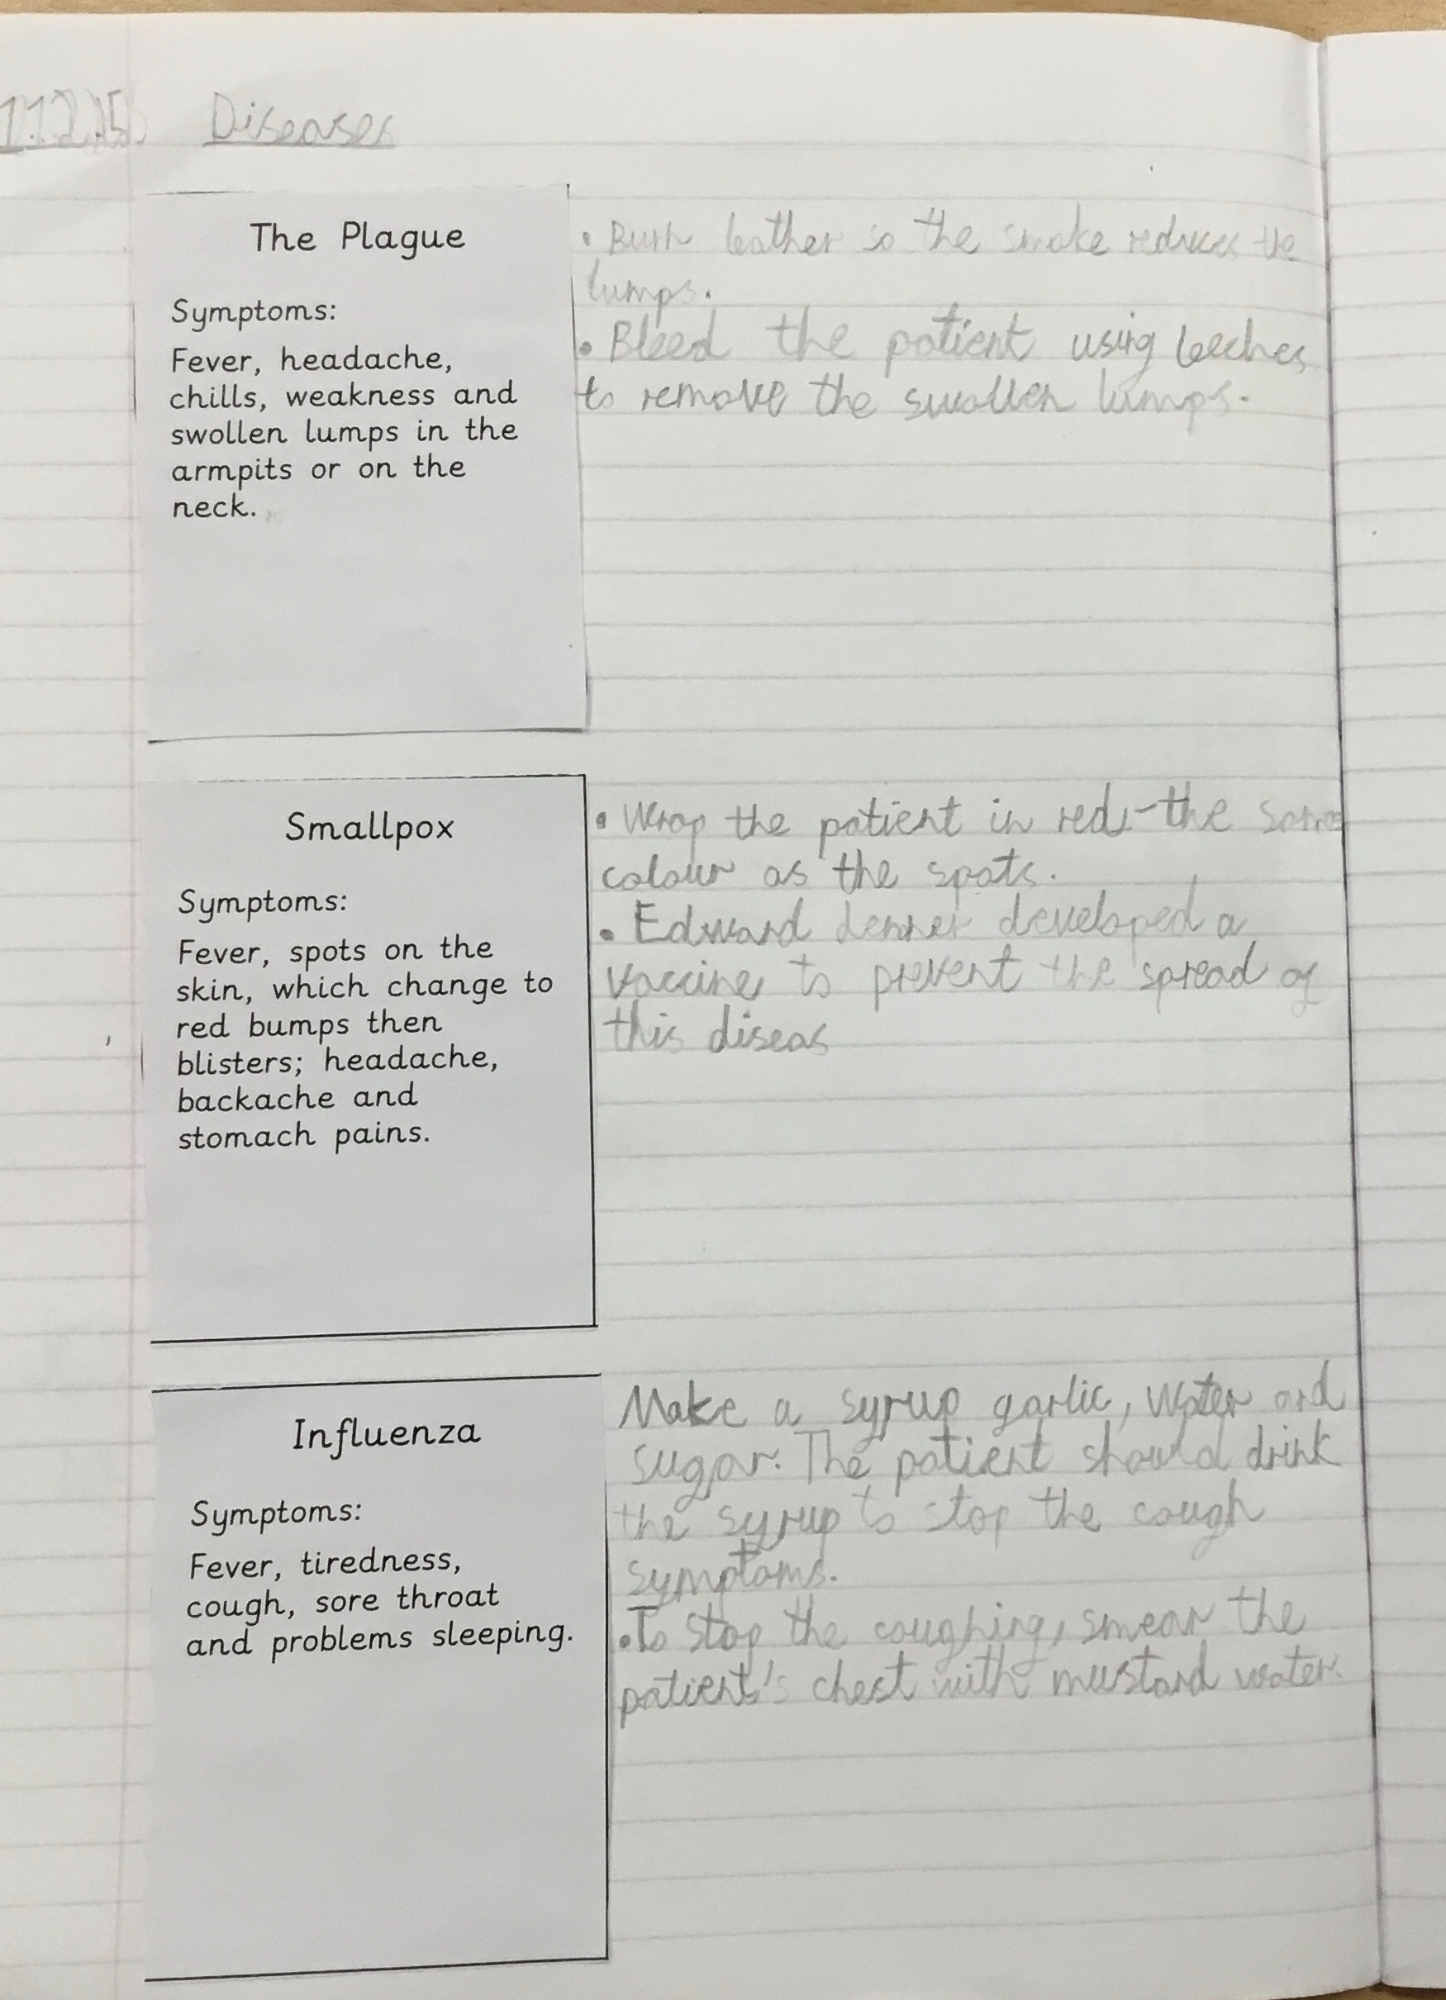 11.2.25 Diseases
The Plague
Symptoms:
Fever, headache,
chills, weakness and
swollen lumps in the
armpits or on the
neck.
• Burn leather so the smoke reduces the
lumps.
• Bleed the patient using leeches
to remove the swollen lumps.
Smallpox
Symptoms:
Fever, spots on the
skin, which change to
red bumps then
blisters; headache,
backache and
stomach pains.
• Wrap the patient in red-the same
colour as the spots.
• Edward Jenner developed a
vaccine to prevent the spread of
this diseas
Influenza
Symptoms:
Fever, tiredness,
cough, sore throat
and problems sleeping.
Make a syrup garlic, water and
sugar. The patient should drink
the syrup to stop the cough
symptoms.
• To stop the coughing, smear the
patient's chest with mustard water.